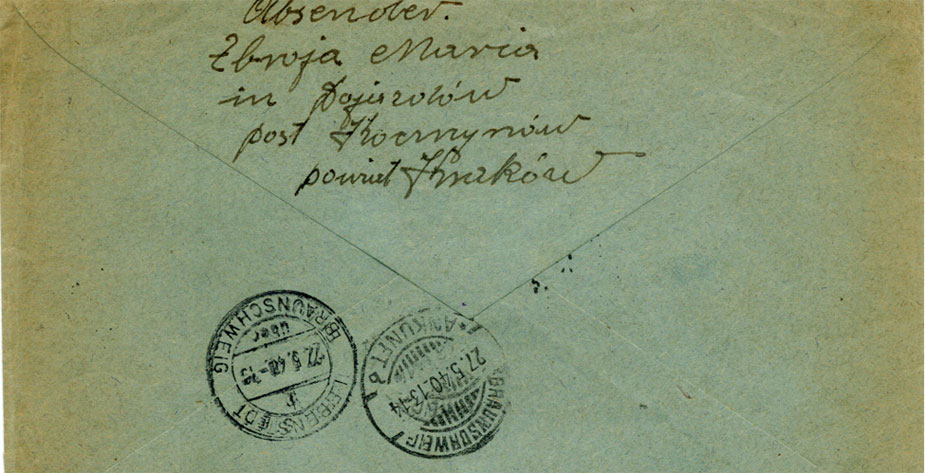 Absender.
Zbroja Maria
in Pojszolów
post Kocmynów
powiat Kraków
LEBENSTEDT
über
BRAUNSCHWEIG
27.5.40
BRAUNSCHWEIG
ANKUNFT
27.5.40.13-14